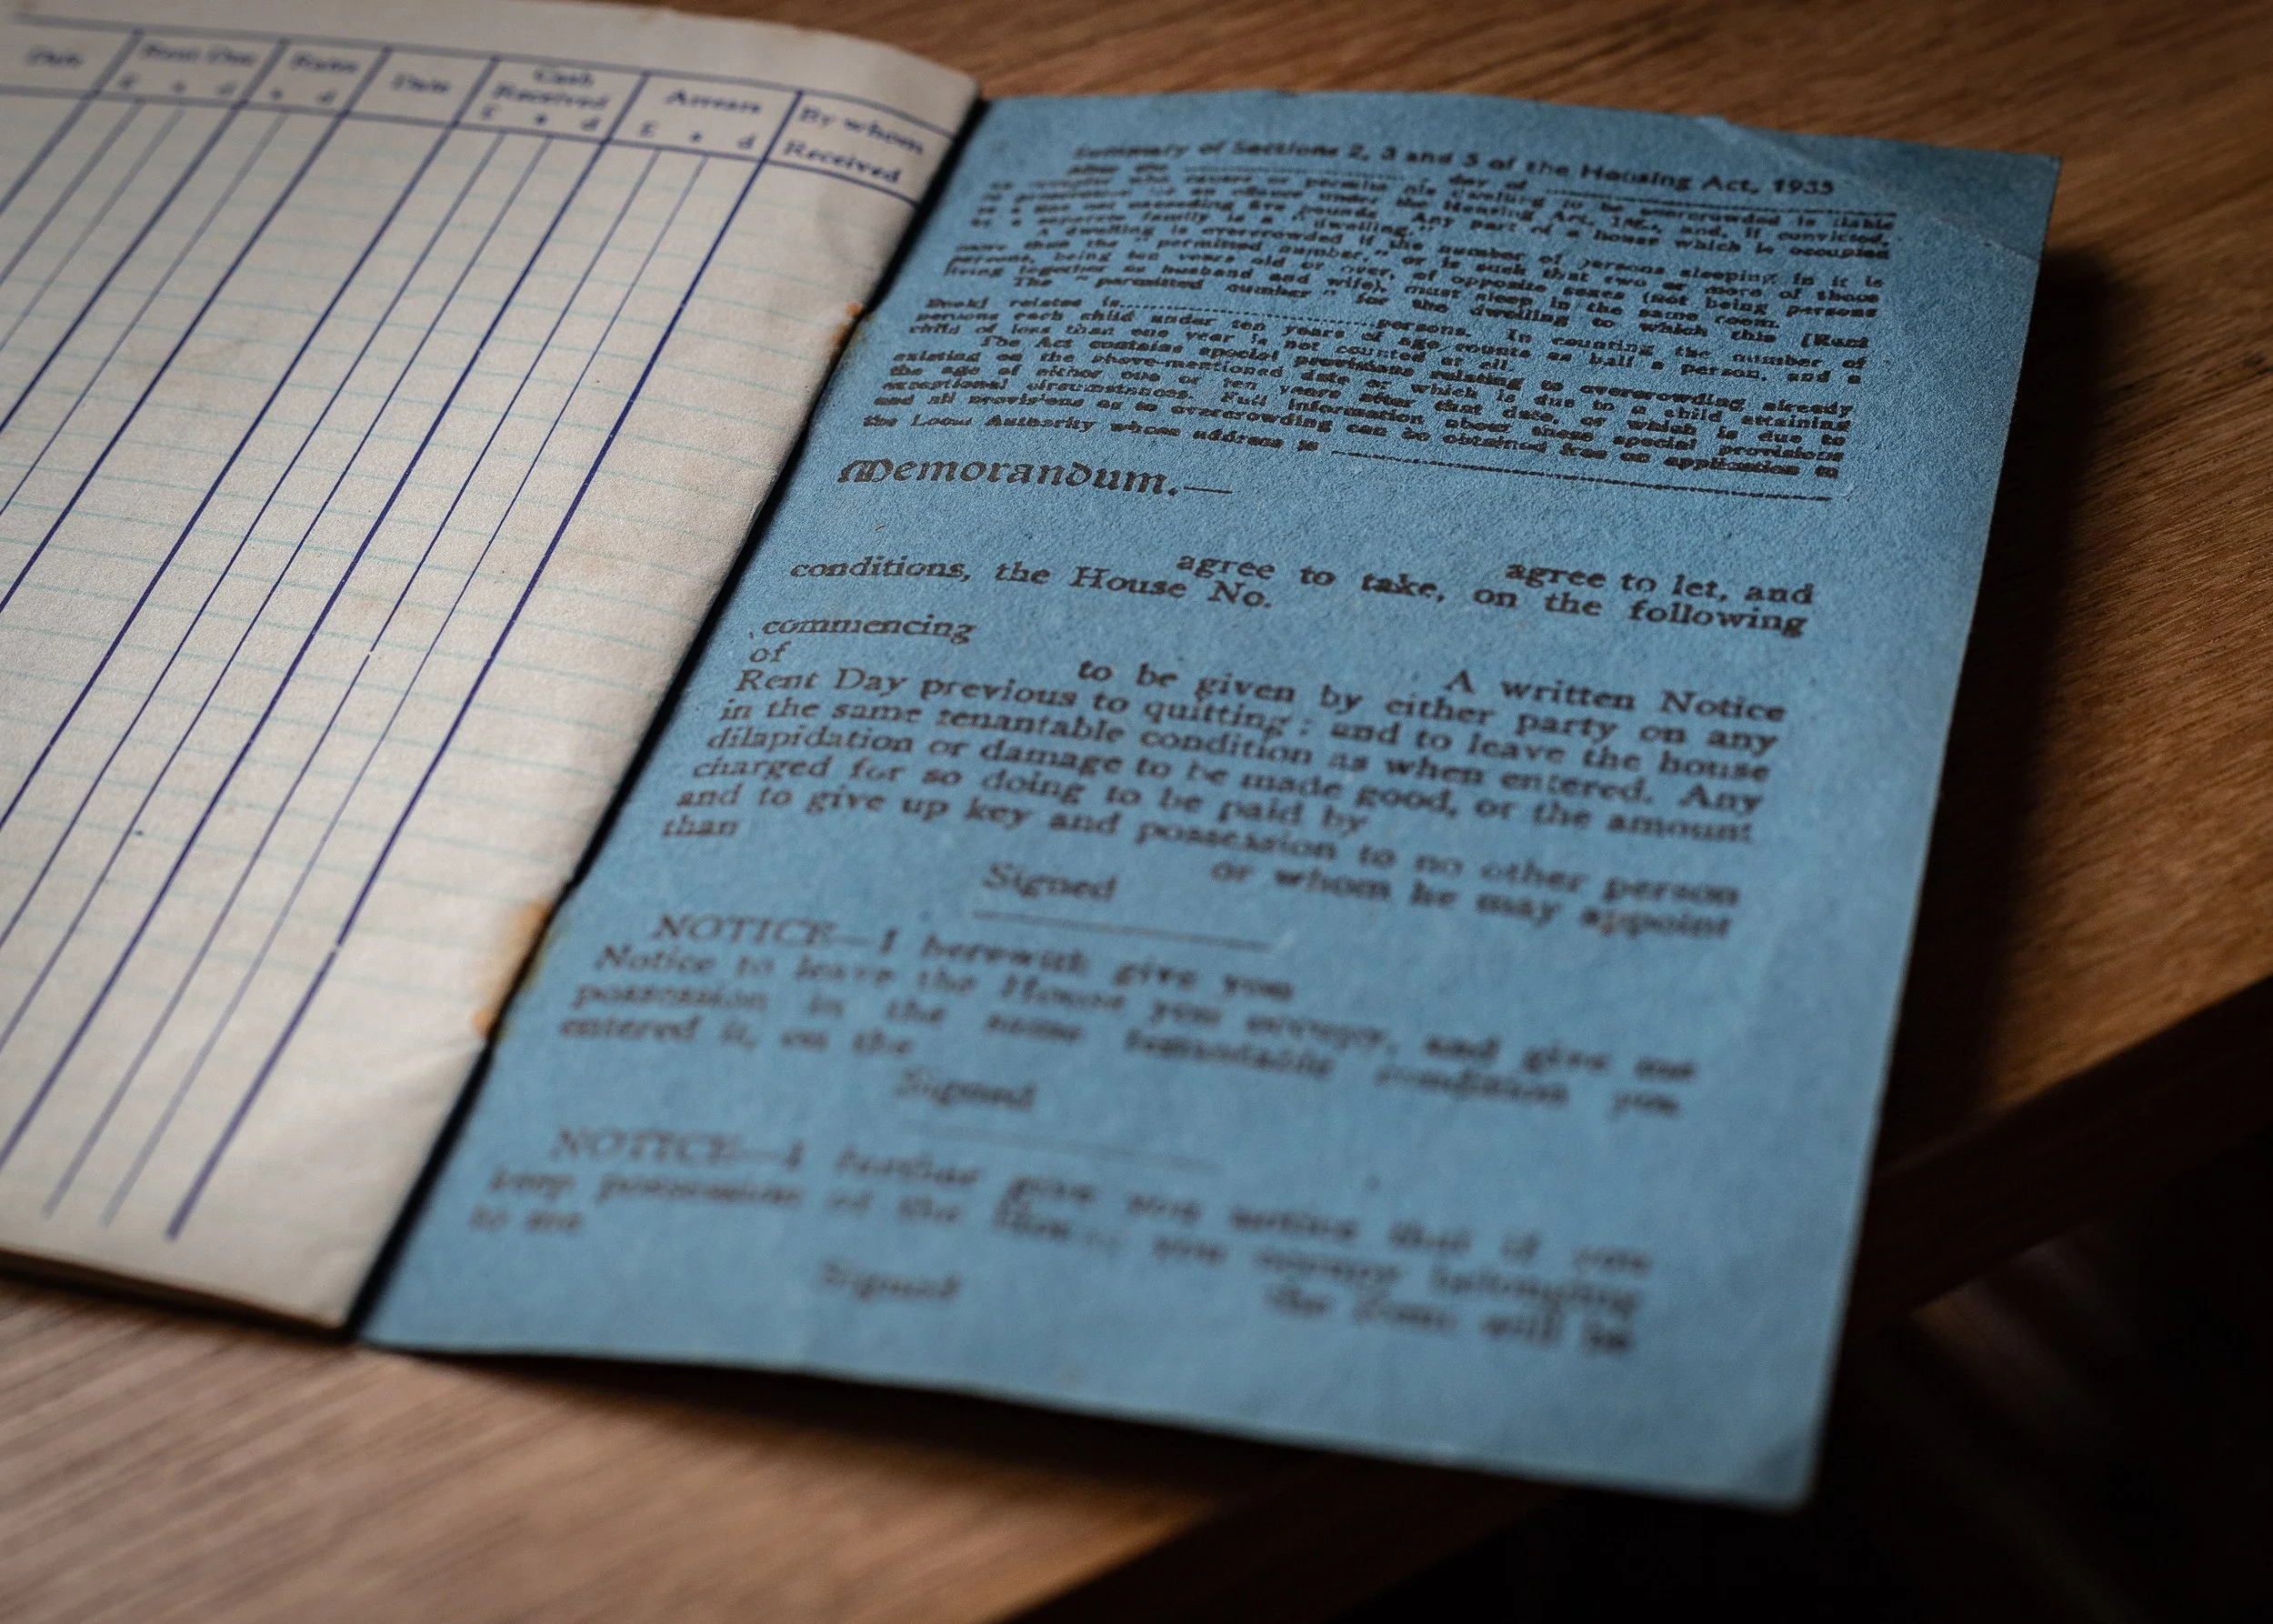 Date
Rent Due
£ s d
Rates
s d
Date
Cash
Received
£ s d
Arrears
£ s d
By whom
Received
Summary of Sections 2, 3 and 5 of the Housing Act, 1935
After the day of
an occupier who causes or permits his dwelling to be overcrowded is liable
to prosecution for an offence under the Housing Act, and, if convicted,
to a fine not exceeding five pounds. Any part of a house which is occupied
by a separate family is a "dwelling."
A dwelling is overcrowded if the number of persons sleeping in it is
more than the "permitted number," or is such that two or more of those
persons, being ten years old or over, of opposite sexes (not being persons
living together as husband and wife), must sleep in the same room.
The "permitted number" for the dwelling to which this [Rent
Book] relates is persons. In counting the number of
persons each child under ten years of age counts as half a person, and a
child of less than one year is not counted at all.
The Act contains special provisions relating to overcrowding already
existing on the above-mentioned date or which is due to a child attaining
the age of either one or ten years after that date, or which is due to
exceptional circumstances. Full information about these special provisions
and all provisions as to overcrowding can be obtained free on application to
the Local Authority whose address is
Memorandum.—
agree to let, and
agree to take, on the following
conditions, the House No.
commencing
A written Notice
of to be given by either party on any
Rent Day previous to quitting; and to leave the house
in the same tenantable condition as when entered. Any
dilapidation or damage to be made good, or the amount
charged for so doing to be paid by
and to give up key and possession to no other person
than or whom he may appoint
Signed
NOTICE—I herewith give you
Notice to leave the House you occupy, and give me
possession in the same tenantable condition you
entered it, on the
Signed
NOTICE—I further give you notice that if you
keep possession of the House you occupy belonging
to me the Rent will be
Signed